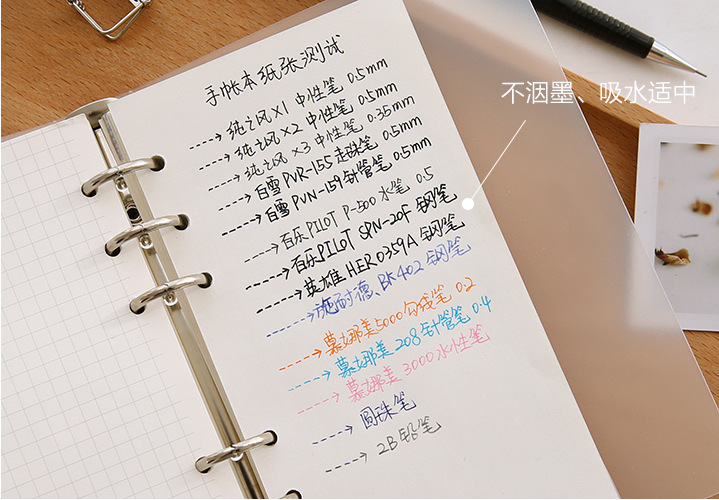 手帐本纸张测试
不洇墨、吸水适中
----→ 纯之风X1 中性笔 0.5mm
----→ 纯之风X2 中性笔 0.5mm
----→ 纯之风X3 中性笔 0.35mm
----→ 白雪 PVR-155 走珠笔 0.5mm
----→ 白雪 PVN-159 针管笔 0.5mm
----→ 百乐PILOT P-500 水笔 0.5
----→ 百乐PILOT SPN-20F 钢笔
----→ 英雄 HERO359A 钢笔
----→ 施耐德、BK402 钢笔
----→ 慕娜美5000 勾线笔 0.2
----→ 慕娜美 208 针管笔 0.4
----→ 慕娜美 3000 水性笔
----→ 圆珠笔
----→ 2B 铅笔